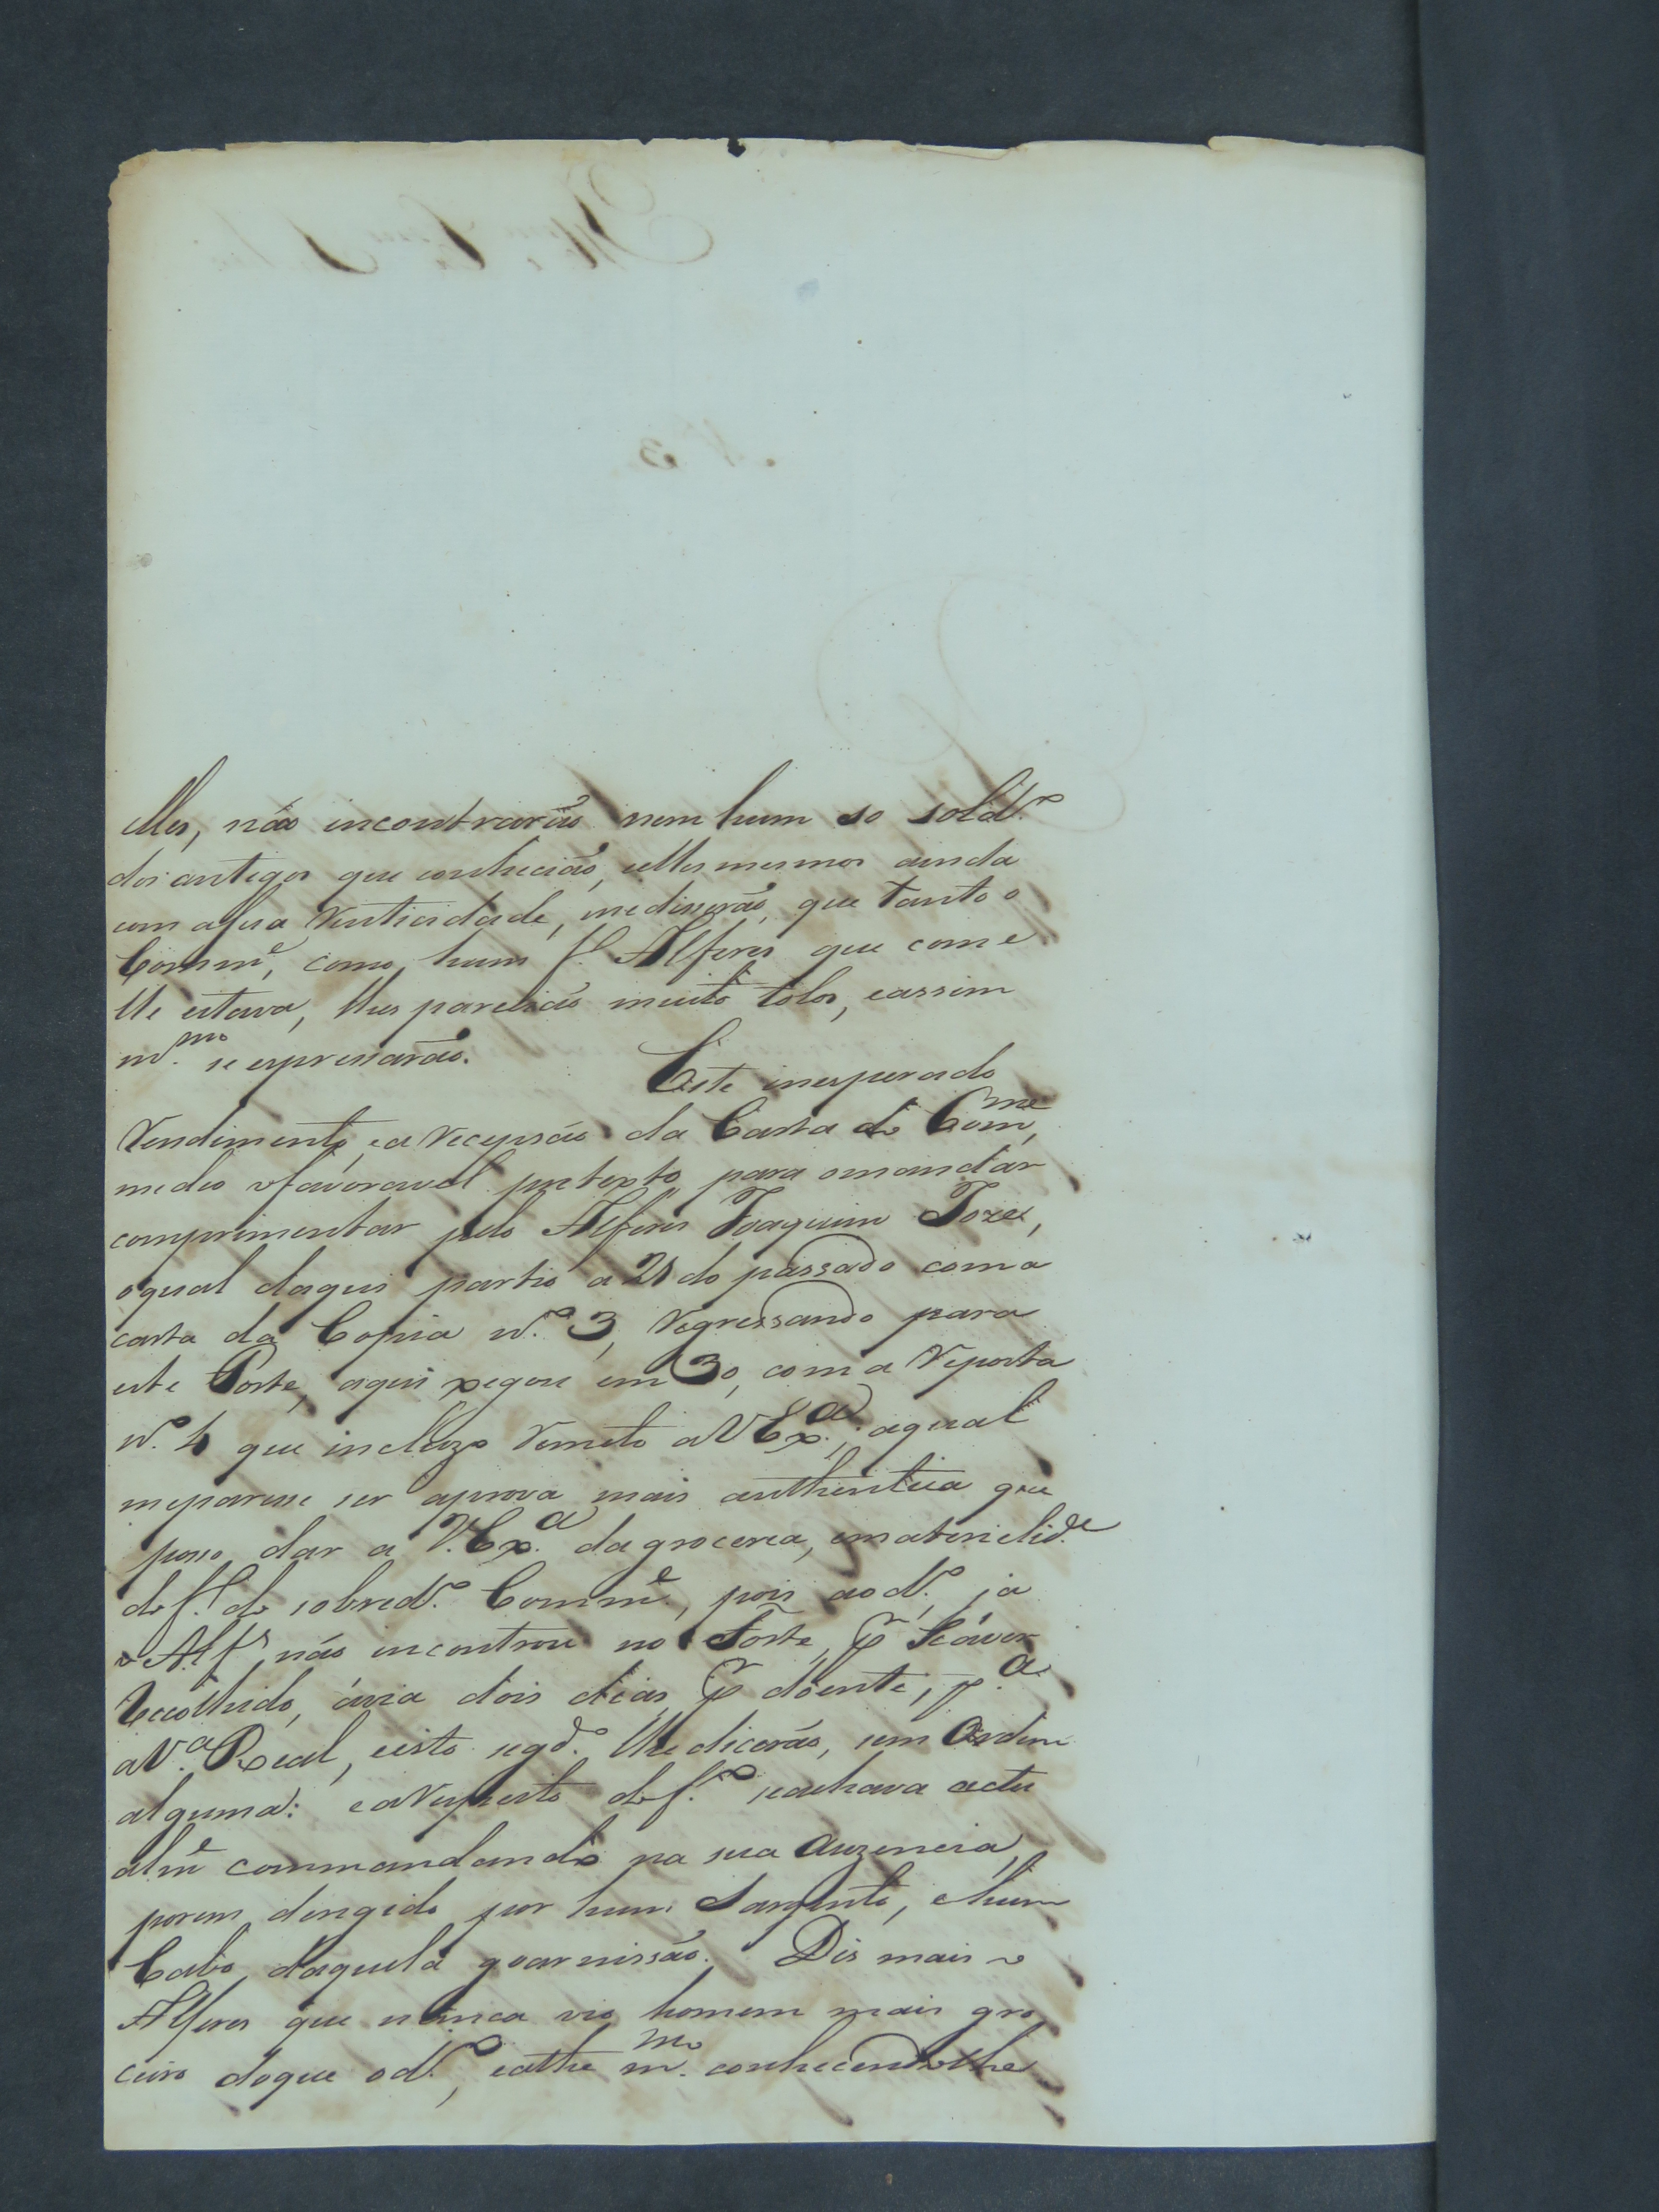 elles, não incontrarão nem hum so sold.º
dos antigos que conhecião, elles mesmos ainda
com a sua rusticidade, me disserão, que tanto o
Comm.e, como hum f.º Alferes que com e
lle estava, lhes parecião muito tolos, e assim
m.mo se expresarão. Este inesperado
rendimento, e a recepsão da Carta do Com.me,
me deo o favoravel pretexto, para o mandar
comprimentar pelo Alferes Joaquim Jozé,
o qual daqui partio a 21 do passado com a
carta da Copia N.º 3, regressando para
este Forte, aqui xegou em 30, com a reposta
N.º 4 que incluzo remeto a V Ex.a, a qual
me parece ser a prova mais authentica que
posso dar a V. Ex.a da groceria, e materielid.e
do f.º do sobred.º Comm.e, pois ao d.º ja
o Alf.s não incontrou no Forte, p.r se áver
recolhido, ávia dois dias p.r doente, p.a
a V.a Real, e isto segd.º lhe dicerão, sem Ordem
alguma: e a respeito do f.º se achava actu
alm.e commandando na sua auzencia,
porem dirigido por hum Sargento, e hum
Cabo daquela goarnissão. Dis mais o
Alferes que nunca vio homem mais gro
ceiro do que o d.º, e athe m.mo conhecendo-lhe